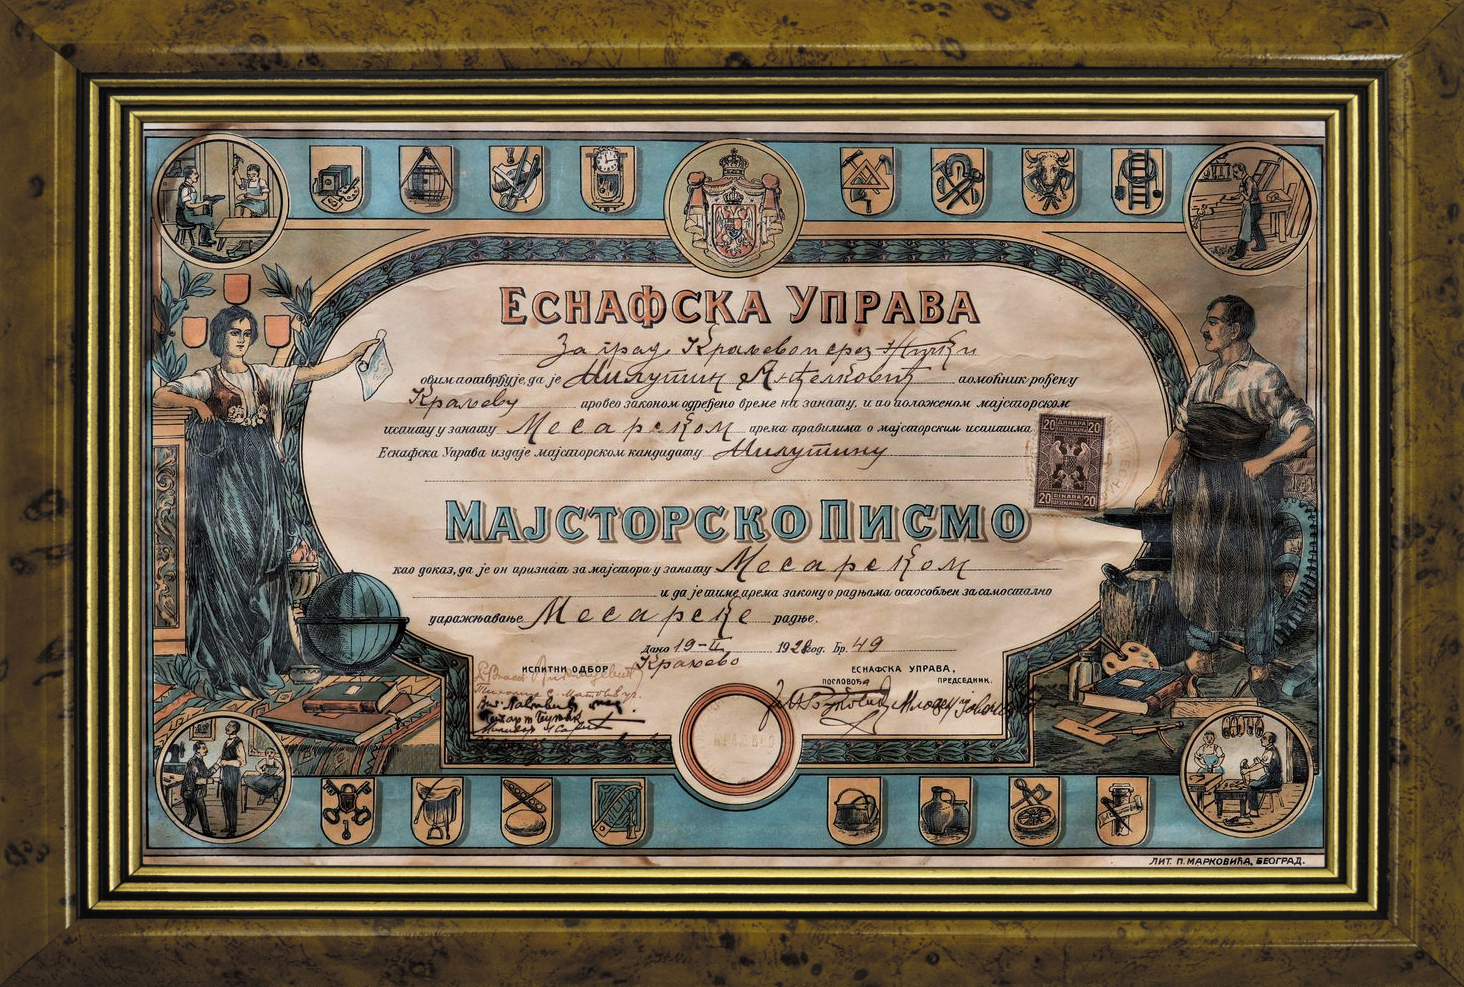 ЕСНАФСКА УПРАВА
За град Краљево и срез Жички
овим потврђује, да је Милутин Анђелковић помоћник рођен у
Краљеву провео законом одређено време на занату, и по положеном мајсторском
испиту у занату Месарском према правилима о мајсторским испитима
Еснафска Управа издаје мајсторском кандидату Милутину
20 ДИНАРА 20
20 DINARA 20
МАЈСТОРСКО ПИСМО
као доказ, да је он признат за мајстора у занату Месарском
и да је тиме према закону о радњама оспособљен за самостално
упражњавање Месарске радње.
Дано 19-II 1928 год. Бр. 49
Краљево
ИСПИТНИ ОДБОР
ЕСНАФСКА УПРАВА,
ПОСЛОВОЂА ПРЕДСЕДНИК.
ЛИТ. П. МАРКОВИЋА, БЕОГРАД.